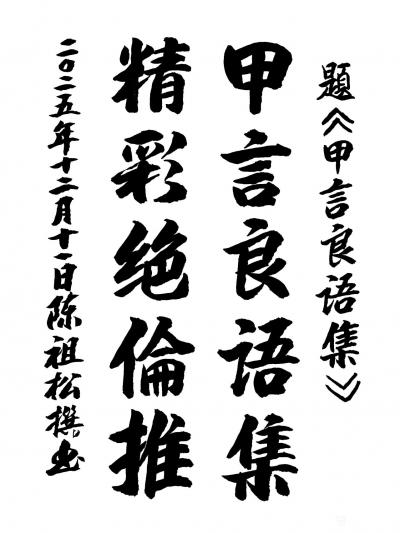 题《甲言良语集》
甲言良语集
精彩绝倫推
二〇二五年十二月十一日陈祖松撰书